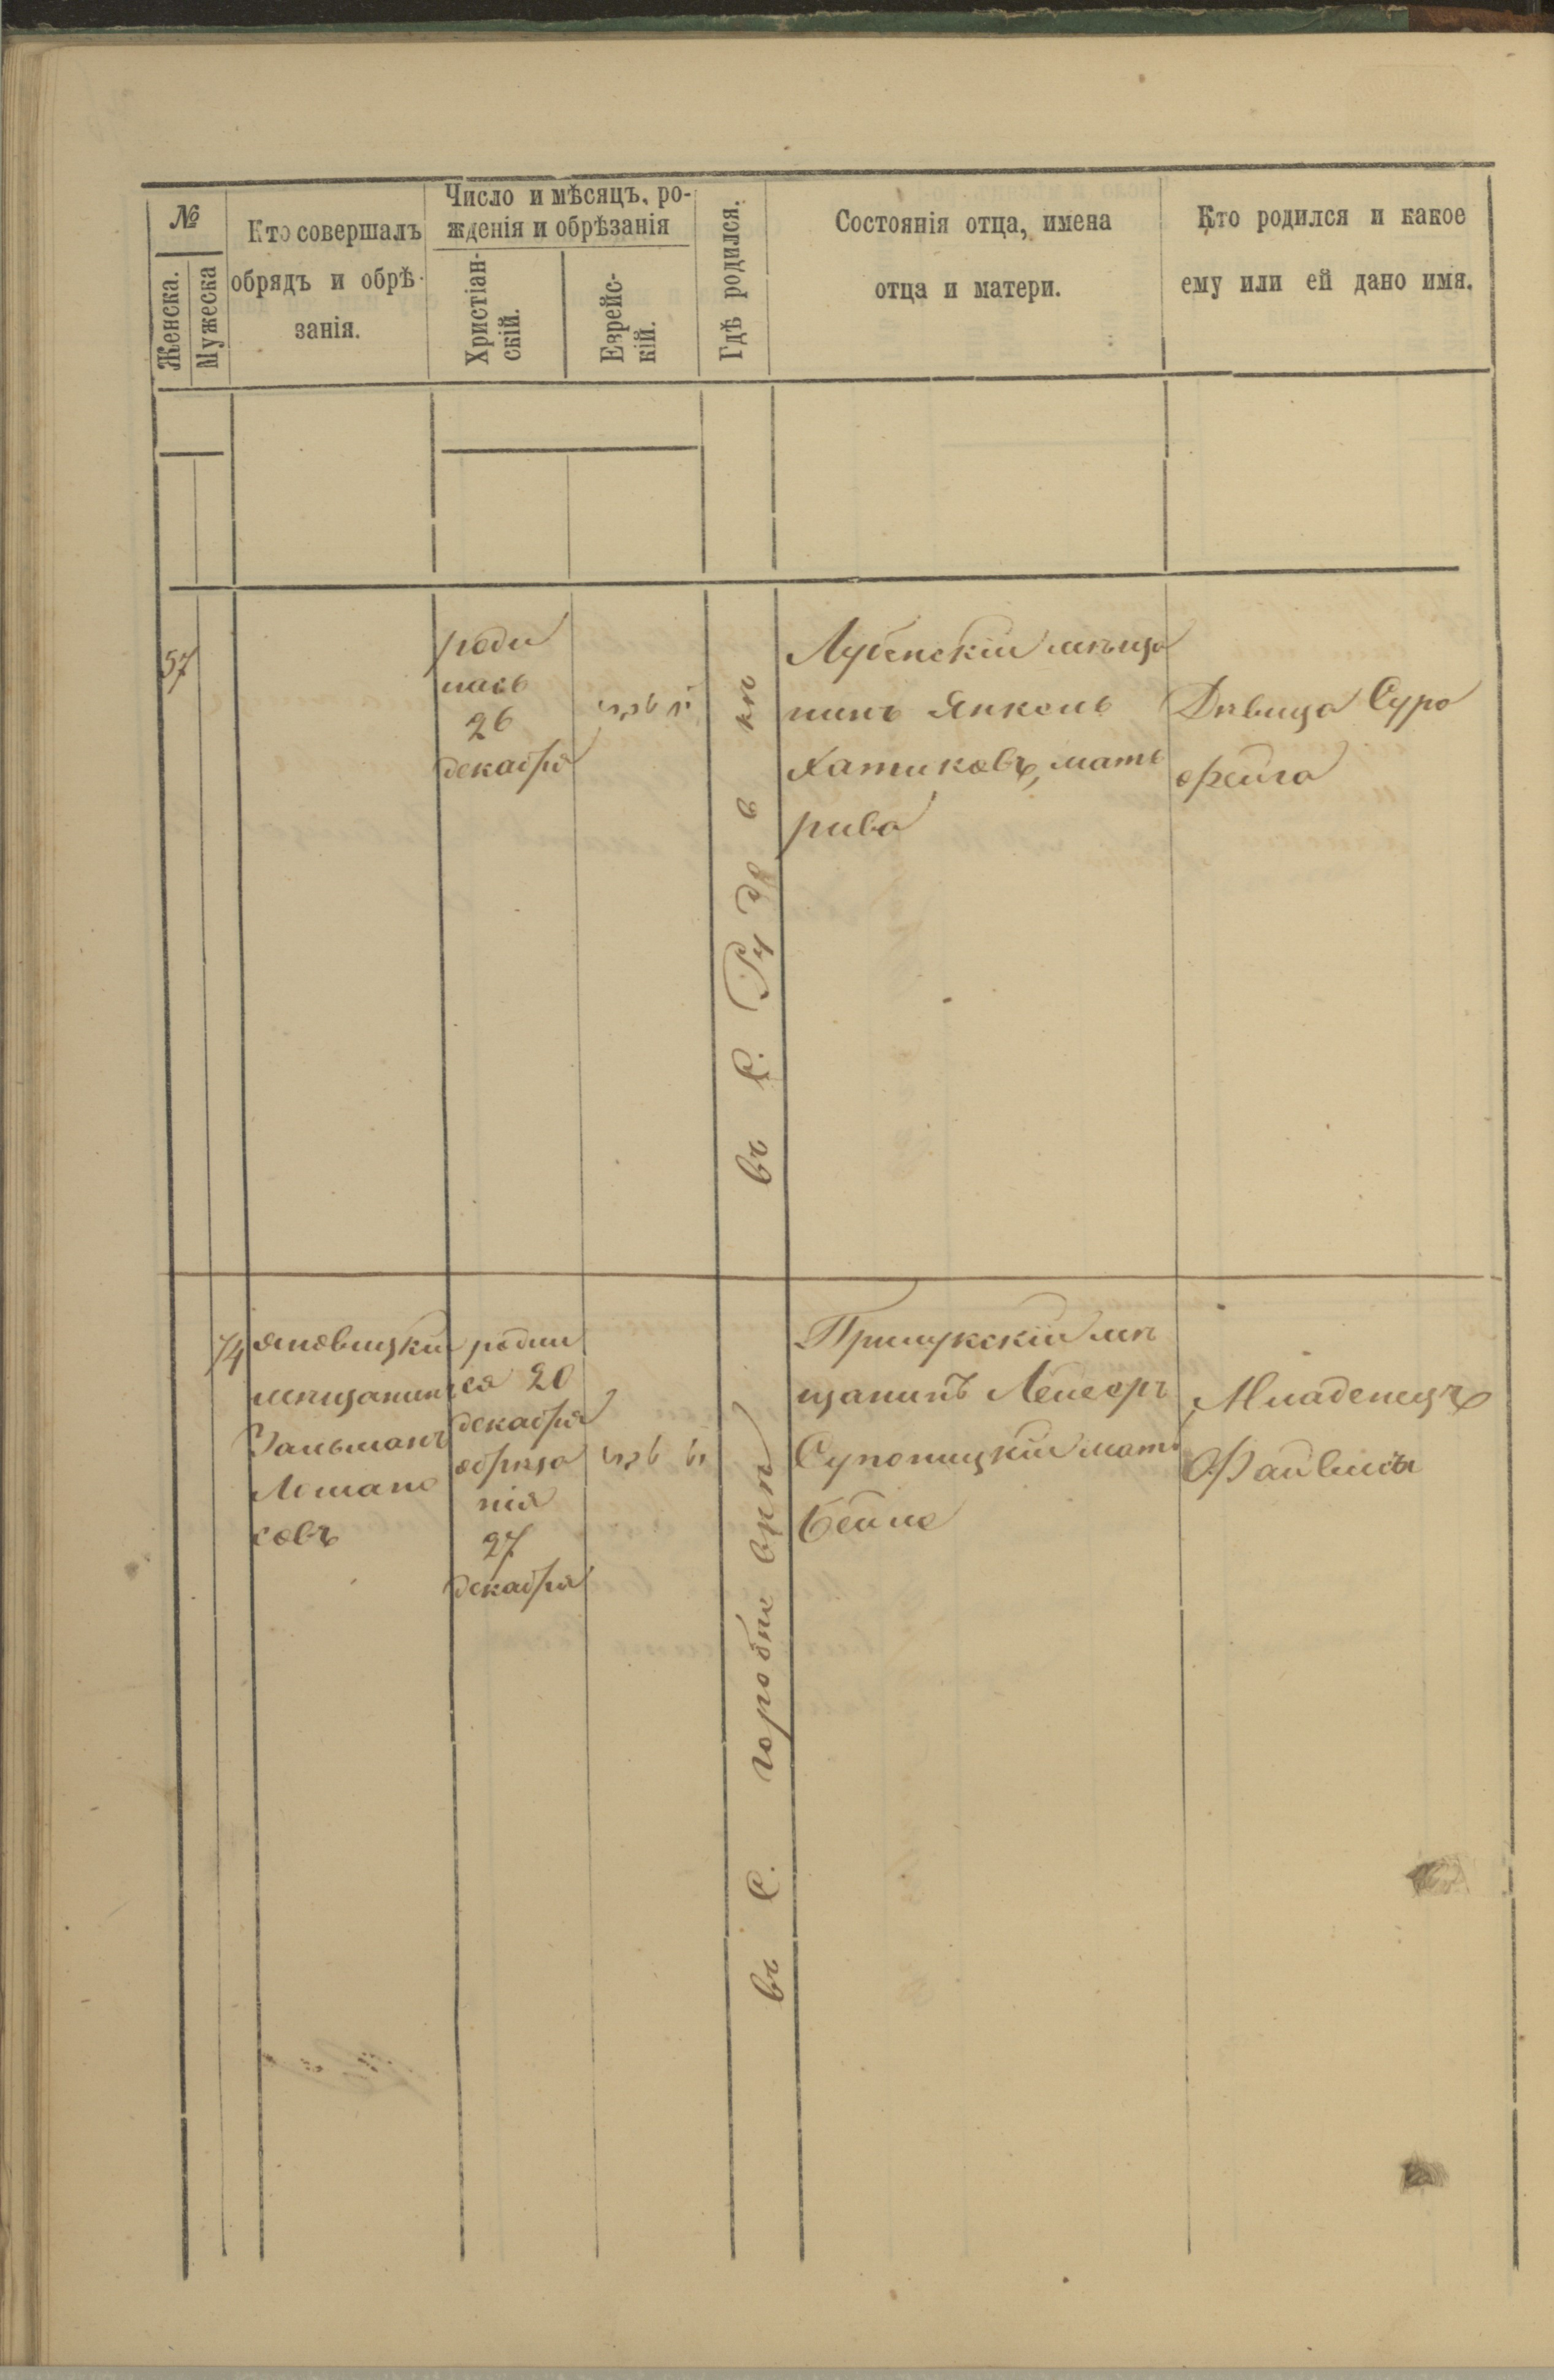 №
Женска.
Мужеска
Кто совершалъ
обрядъ и обрѣ-
занія.
Число и мѣсяцъ, ро-
жденія и обрѣзанія
Христіан-
скій.
Еврейс-
кій.
Гдѣ родился.
Состоянія отца, имена
отца и матери.
Кто родился и какое
ему или ей дано имя.
57
роди
лась
26
декабря
въ С. Рудовкѣ
Лубенскій мѣща
нинъ Янкель
Хатиковъ, мать
рива
Дѣвица Сура
фейга
74
яновицкій
мѣщанинъ
Зальманъ
родил
ся 20
декабря
обрѣза
нія
27
декабря
въ С.
Прилукскій мѣ
щанинъ Лейзеръ
Супоницкій мать
Бейла
Младенецъ
Файвишъ